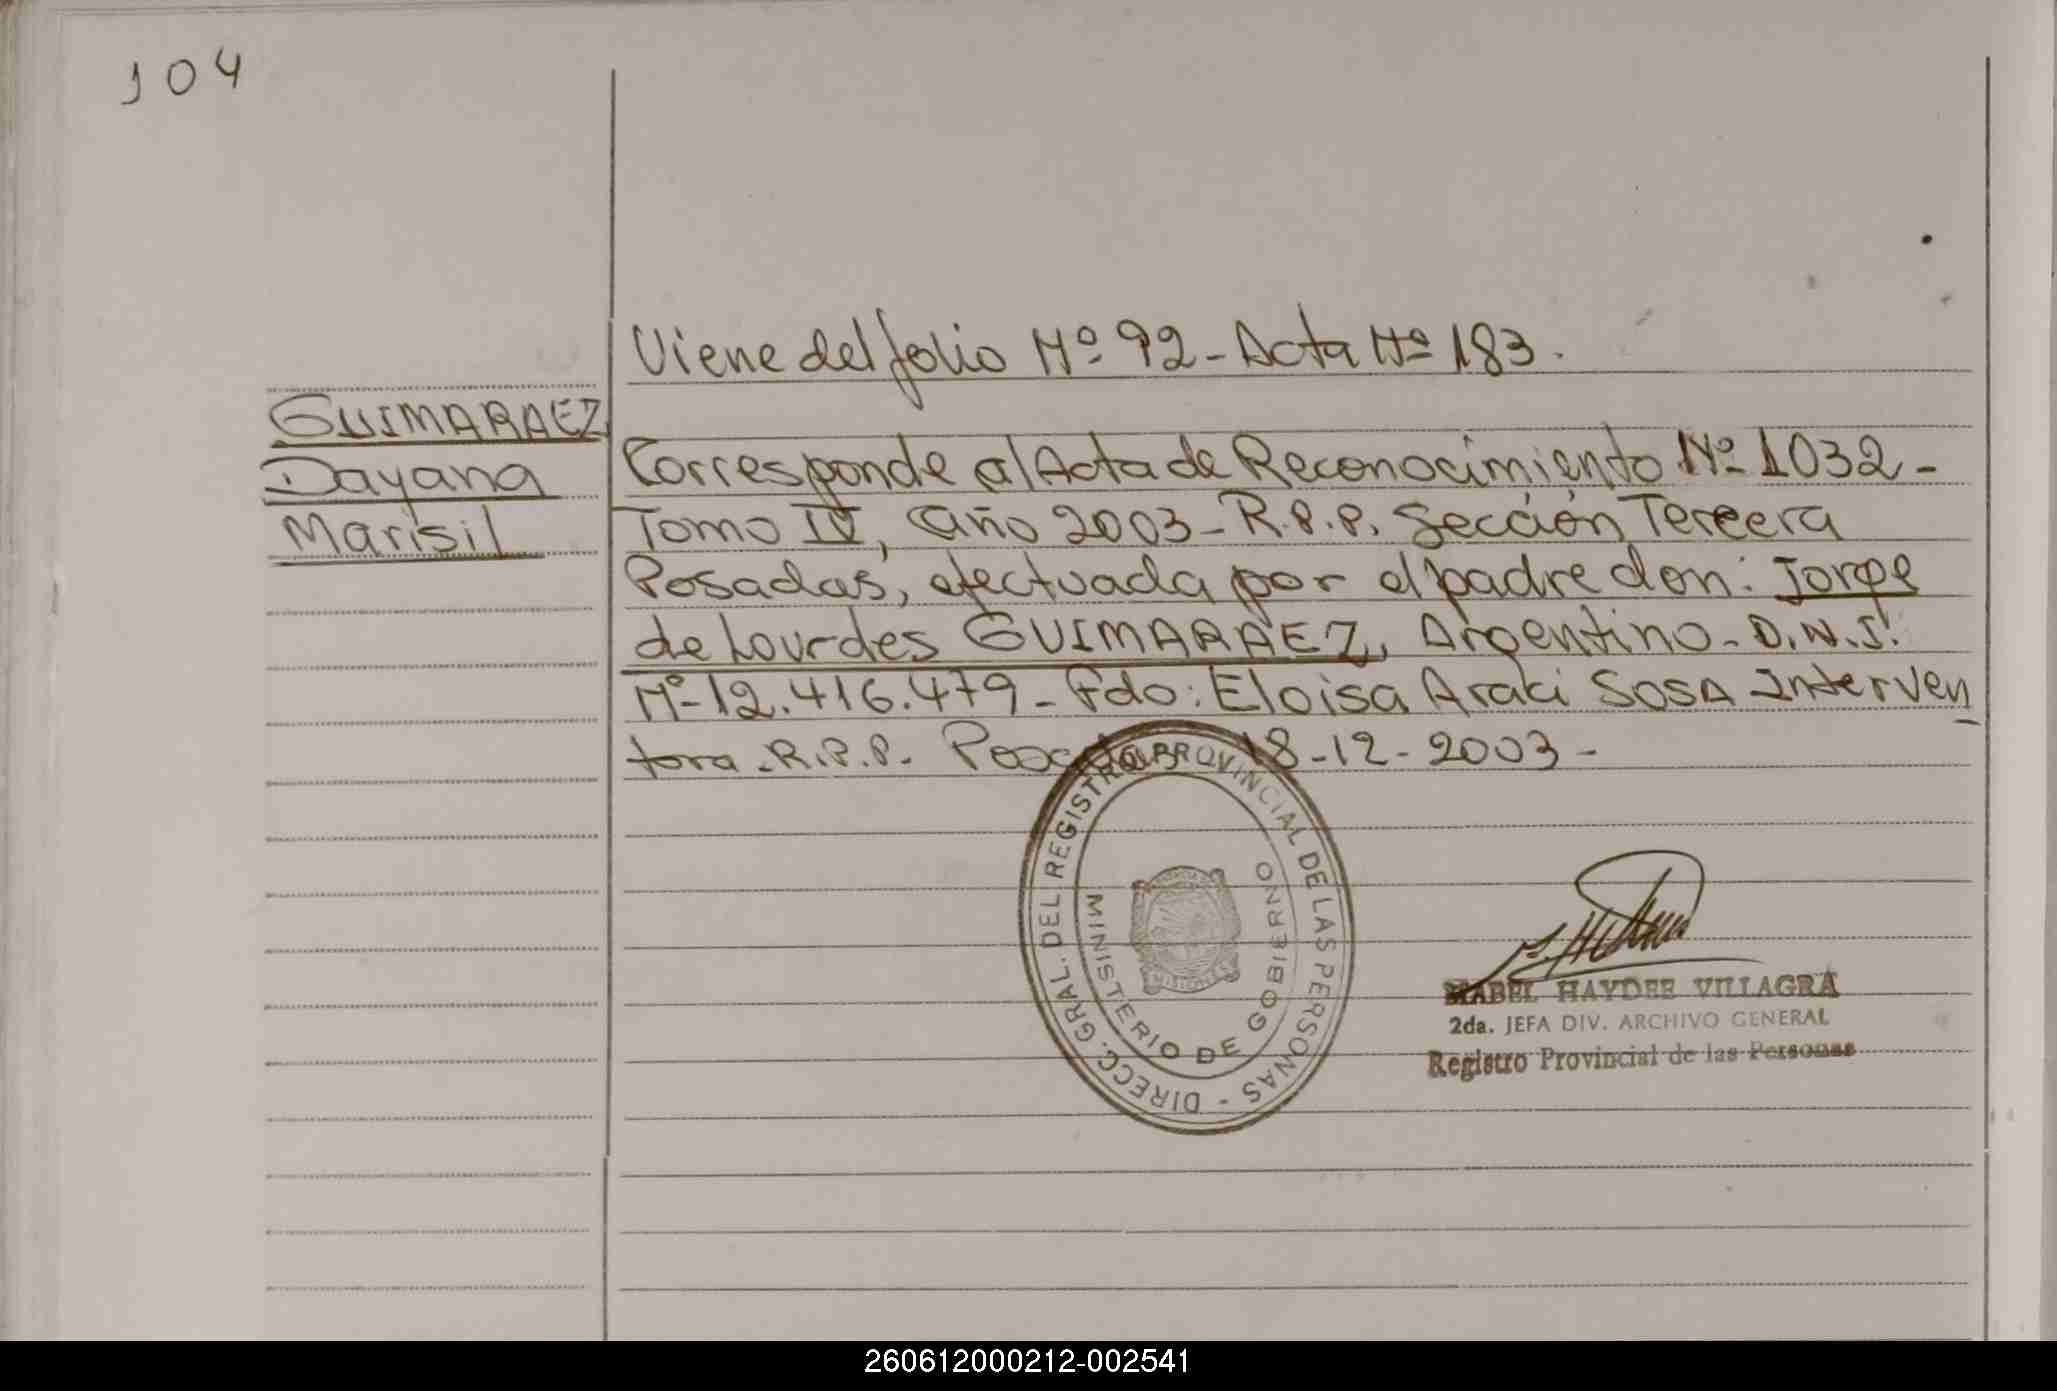 104
Viene del folio Nº 92 - Acta Nº 183.
GUIMARAEZ
Dayana
Marisil
Corresponde al Acta de Reconocimiento Nº 1032 -
Tomo IV, Año 2003 - R.P.P. Sección Tercera
Posadas, efectuada por el padre don: Jorge
de Lourdes GUIMARAEZ, Argentino - D.N.I.
Nº 12.416.479 - Fdo: Eloisa Araci SOSA Interven
tora - R.P.P. Posadas 18-12-2003 -
DIRECC. GRAL. DEL REGISTRO PROVINCIAL DE LAS PERSONAS -
MINISTERIO DE GOBIERNO
MISIONES
MABEL HAYDEE VILLAGRA
2da. JEFA DIV. ARCHIVO GENERAL
Registro Provincial de las Personas
260612000212-002541